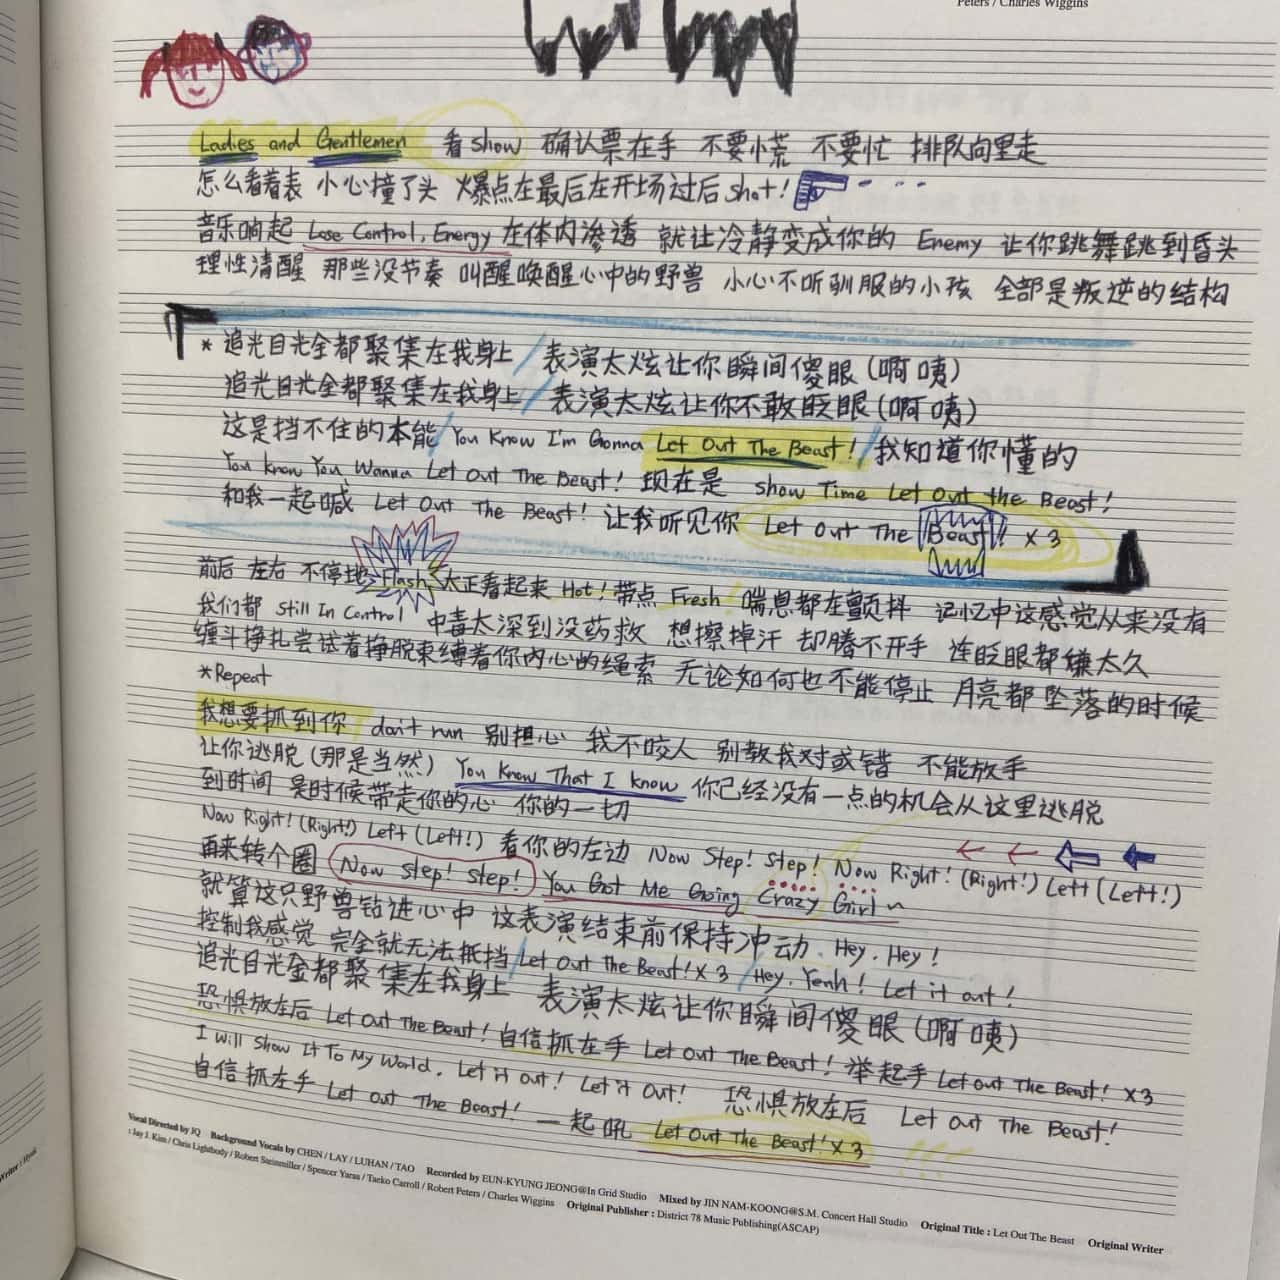 Peters / Charles Wiggins
Ladies and Gentlemen 看show 确认票在手 不要慌 不要忙 排队向里走
怎么看着表 小心撞了头 爆点在最后在开场过后 shot!
音乐响起 Lose Control, Energy 在体内渗透 就让冷静变成你的 Enemy 让你跳舞跳到昏头
理性清醒 那些没节奏 叫醒唤醒心中的野兽 小心不听驯服的小孩 全部是叛逆的结构
* 追光目光全都聚集在我身上 / 表演太炫让你瞬间傻眼 (啊 咦)
追光目光全都聚集在我身上 / 表演太炫让你不敢眨眼 (啊 咦)
这是挡不住的本能 / You Know I'm Gonna Let Out The Beast! / 我知道你懂的
You know You Wanna Let Out The Beast! 现在是 show Time Let Out the Beast!
和我一起喊 Let Out The Beast! 让我听见你 Let Out The Beast! x 3
前后 左右 不停地 Flash 太正看起来 Hot! 带点 Fresh! 喘息都在颤抖 记忆中这感觉从来没有
我们都 Still In Control 中毒太深到没药救 想擦掉汗 却腾不开手 连眨眼都嫌太久
缠斗挣扎尝试着挣脱束缚着你内心的绳索 无论如何也不能停止 月亮都坠落的时候
*Repeat
我想要抓到你 don't run 别担心 我不咬人 别教我对或错 不能放手
让你逃脱 (那是当然) You Know That I know 你已经没有一点的机会从这里逃脱
到时间 是时候带走你的心 你的一切
Now Right! (Right!) Left (Left!) 看你的左边 Now Step! Step! Now Right! (Right!) Left (Left!)
再来转个圈 Now step! step! You Got Me Going Crazy Girl ~
就算这只野兽钻进心中 这表演结束前保持冲动. Hey. Hey!
控制我感觉 完全就无法抵挡 / Let Out The Beast! x 3 / Hey. Yeah! Let it out!
追光目光全都聚集在我身上 表演太炫让你瞬间傻眼 (啊 咦)
恐惧放左后 Let Out The Beast! 自信抓左手 Let Out The Beast! 举起手 Let Out The Beast! x 3
I Will Show It To My World. Let it out! Let it Out! 恐惧放左后 Let Out The Beast!
自信抓左手 Let out The Beast! 一起吼 Let Out The Beast! x 3
Vocal Directed by JQ Background Vocals by CHEN / LAY / LUHAN / TAO Recorded by EUN-KYUNG JEONG@In Grid Studio Mixed by JIN NAM-KOONG@S.M. Concert Hall Studio Original Title : Let Out The Beast Original Writer
: Jay J. Kim / Chris Lightbody / Robert Steinmiller / Spencer Yaras / Taeko Carroll / Robert Peters / Charles Wiggins Original Publisher : District 78 Music Publishing(ASCAP)